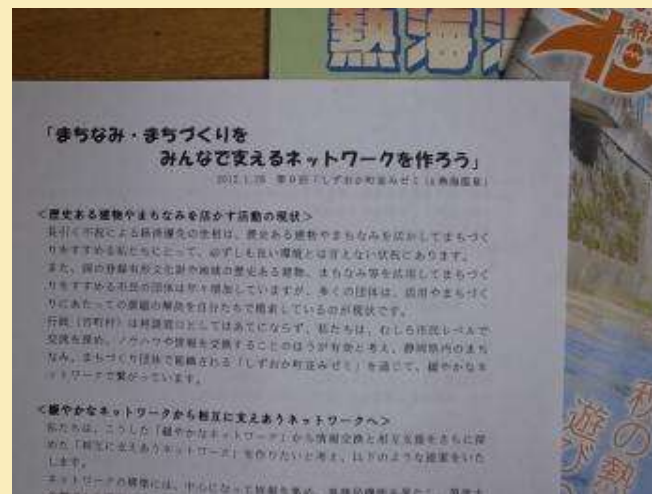 熱海
「まちなみ・まちづくりを
みんなで支えるネットワークを作ろう」
2012.1.28 第9回「しずおか町並みゼミ in 熱海温泉」
<歴史ある建物やまちなみを活かす活動の現状>
長引く不況による経済優先の世相は、歴史ある建物やまちなみを活かしてまちづく
りをすすめる私たちにとって、必ずしも良い環境とは言えない状況にあります。
また、国の登録有形文化財や地域の歴史ある建物、まちなみ等を活用してまちづく
りをすすめる市民の団体は年々増加していますが、多くの団体は、活用やまちづく
りにあたっての課題の解決を自分たちで模索しているのが現状です。
行政（市町村）は相談窓口としてはあてにならず、私たちは、むしろ市民レベルで
交流を深め、ノウハウや情報を交換することのほうが有効と考え、静岡県内のまち
なみ、まちづくり団体で組織される「しずおか町並みゼミ」を通じて、緩やかなネ
ットワークで繋がっています。
<緩やかなネットワークから相互に支えあうネットワークへ>
私たちは、こうした「緩やかなネットワーク」から情報交換と相互支援をさらに深
めた「相互に支えあうネットワーク」を作りたいと考え、以下のような提案をいた
します。
ネットワークの構築には、中心になって情報を集め、
秋の熱
遊び